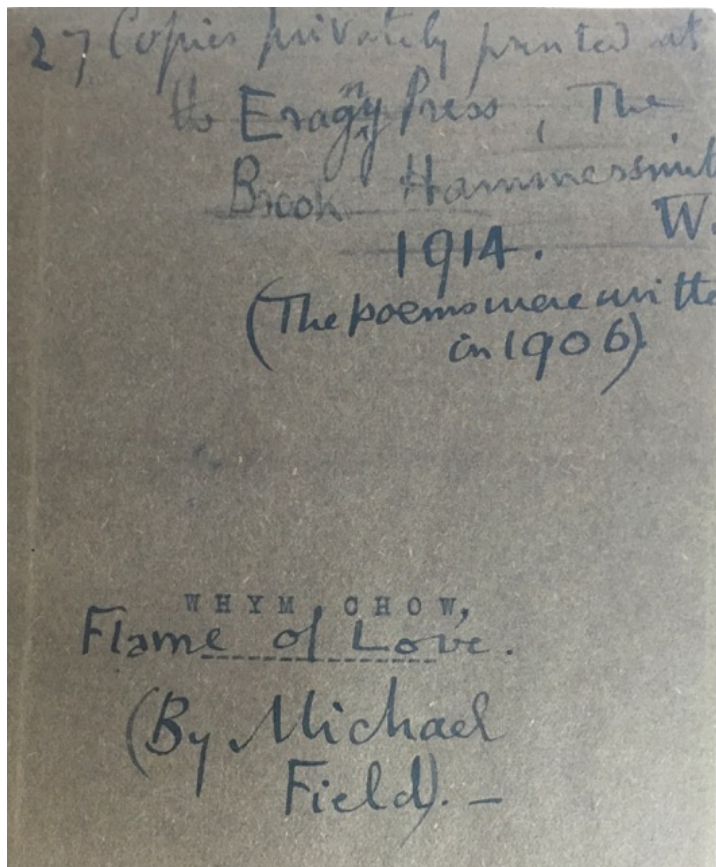 27 Copies privately printed at
the Eragny Press, The
Brook Hammersmit
W.
1914.
(The poems were writte
in 1906)
WHYM CHOW,
Flame of Love.
(By Michael
Field). —